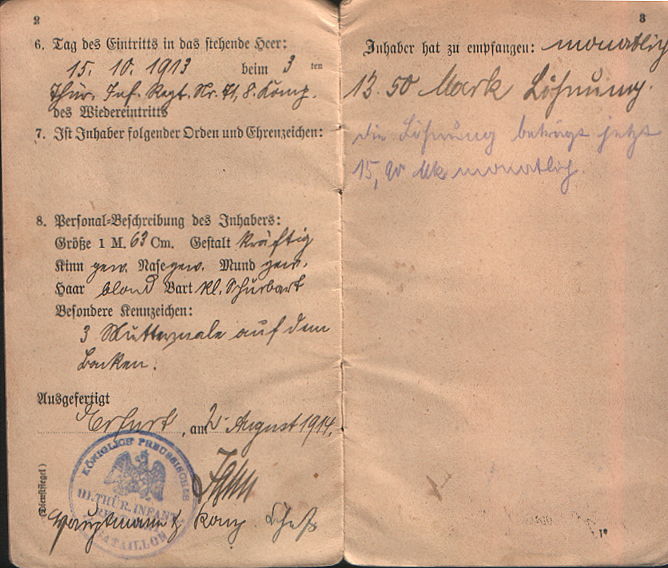 2
6. Tag des Eintritts in das stehende Heer:
15. 10. 1913 beim 3 ten
Thür. Inf. Regt. Nr. 71, 8. Komp.
des Wiedereintritts
7. Ist Inhaber folgender Orden und Ehrenzeichen:
8. Personal-Beschreibung des Inhabers:
Größe 1 M. 63 Cm. Gestalt kräftig
Kinn gew. Nase gew. Mund gew.
Haar blond Bart kl. Schnurbart
Besondere Kennzeichen:
3 Muttermale auf dem
Backen.
Ausgefertigt
Erfurt, am 2. August 1914.
(Dienstsiegel)
KÖNIGLICH PREUSSISCHES
III. THÜR. INFANT.
BATAILLON
Hauptmann u. Komp. Chef
3
Inhaber hat zu empfangen: monatlich
13.50 Mark Löhnung.
die Löhnung beträgt jetzt
15,90 Mk monatlich.
1*